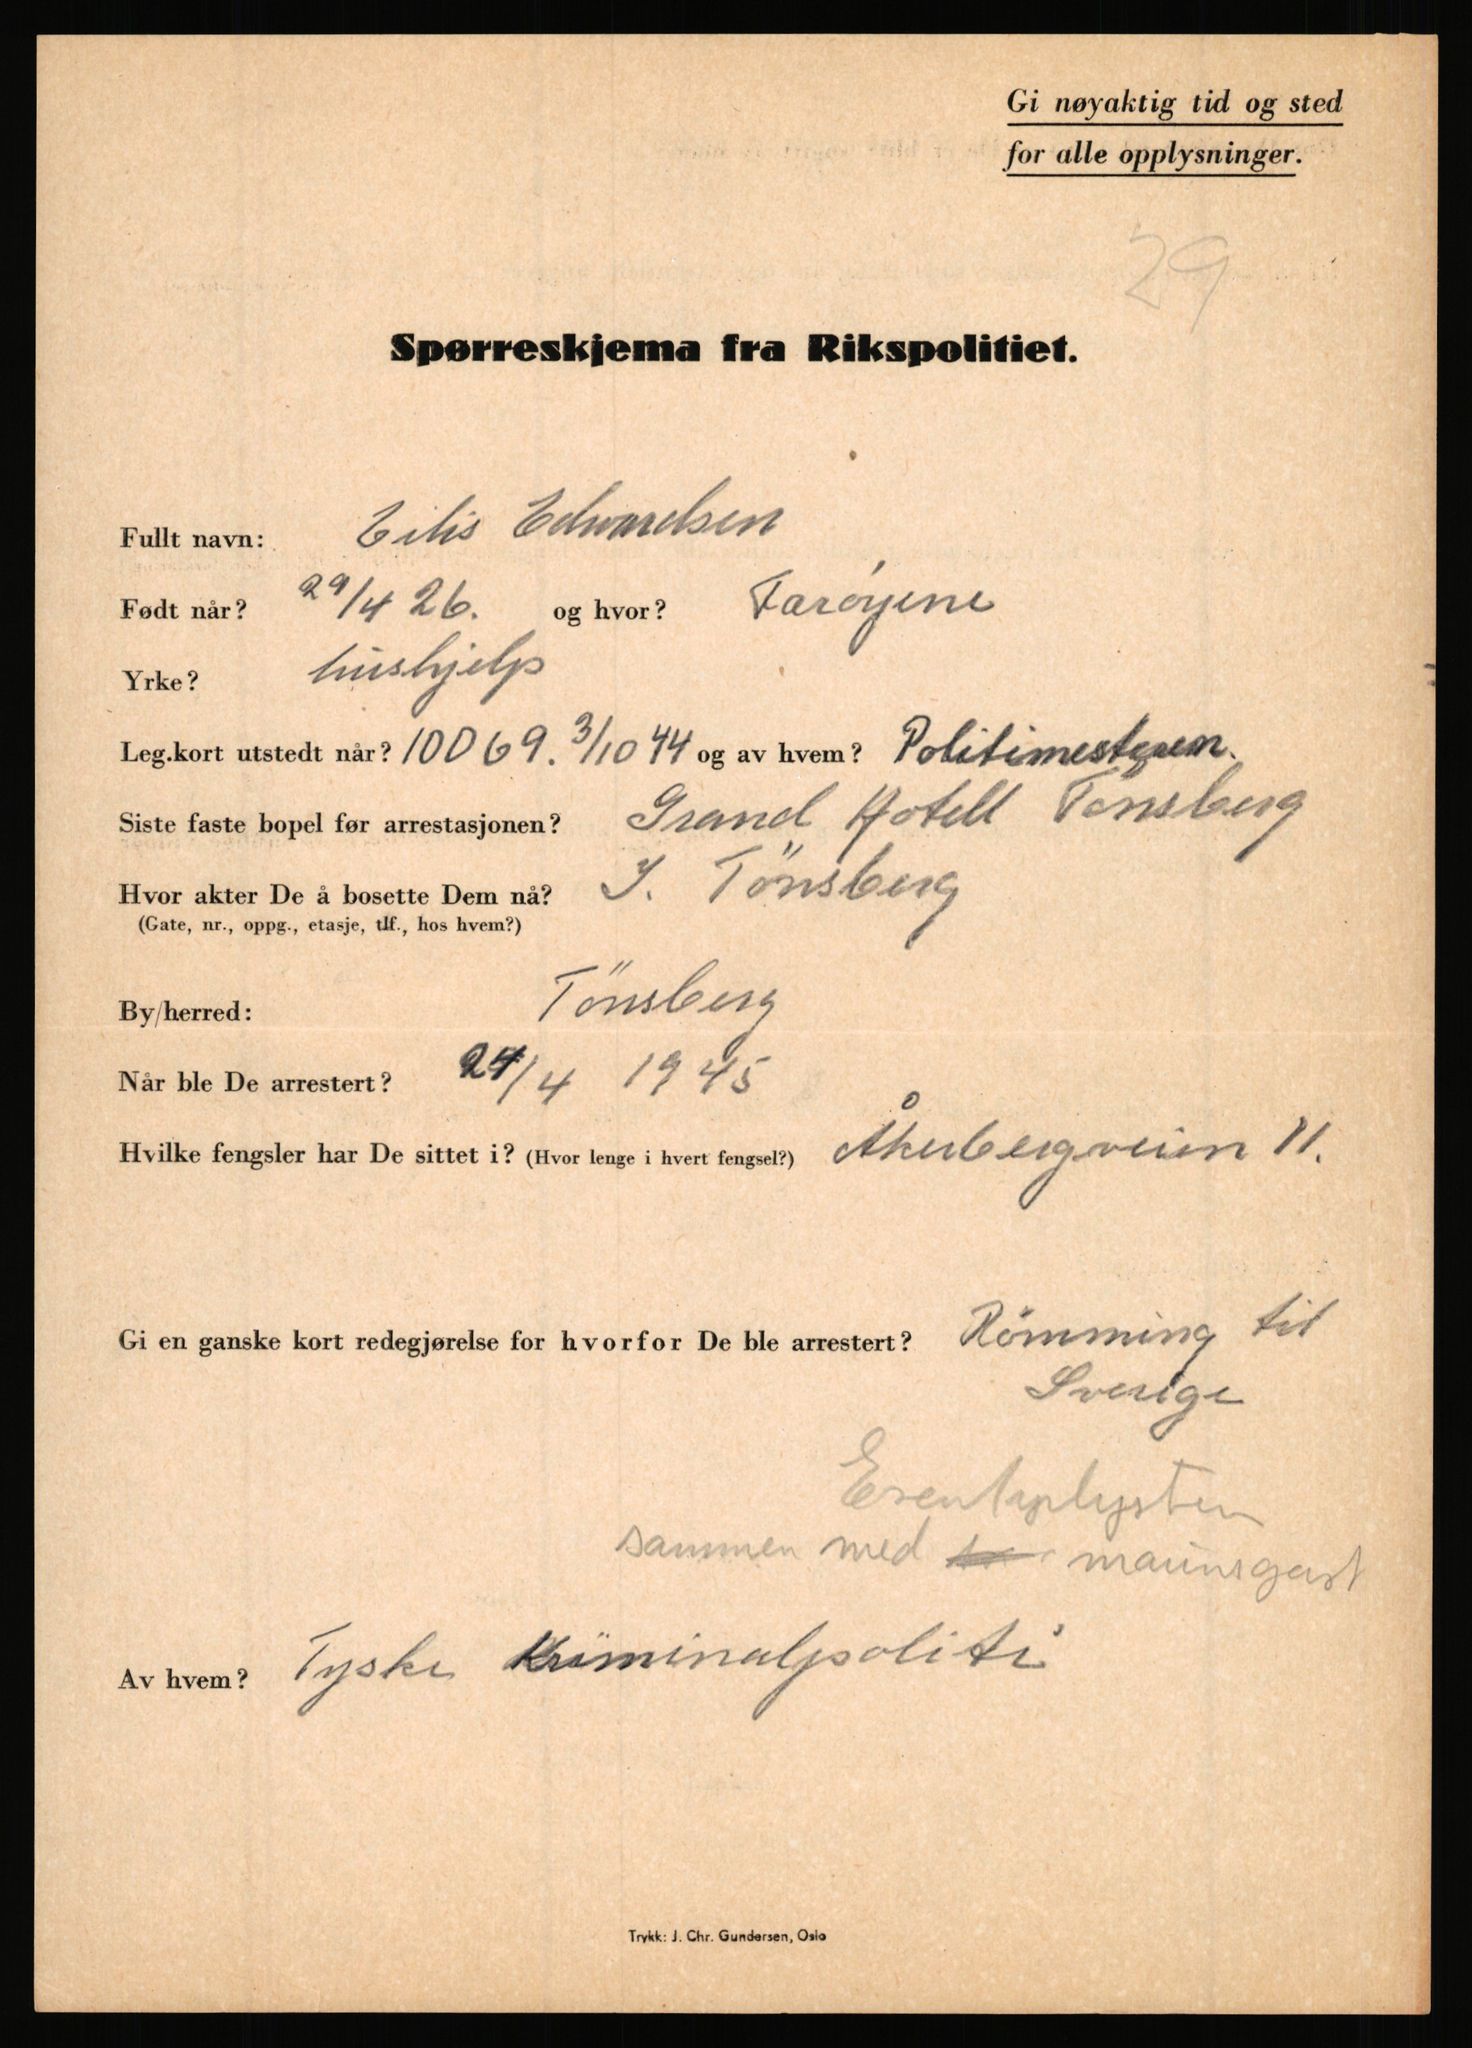 Gi nøyaktig tid og sted
for alle opplysninger.
29
Spørreskjema fra Rikspolitiet.
Fullt navn: Eilis Edwardsen
Født når? 29/4 26. og hvor? Færöyene
Yrke? hushjelp
Leg.kort utstedt når? 10069. 3/10 44 og av hvem? Politimesteren.
Siste faste bopel før arrestasjonen? Grand Hotell Tönsberg
Hvor akter De å bosette Dem nå? I. Tönsberg
(Gate, nr., oppg., etasje, tlf., hos hvem?)
By/herred: Tönsberg
Når ble De arrestert? 24/4 1945
Hvilke fengsler har De sittet i? (Hvor lenge i hvert fengsel?) Åkerbergveien 11.
Gi en ganske kort redegjørelse for hvorfor De ble arrestert? Römming til
Sverige
sammen med
Av hvem? Tyske Kriminalpoliti
Trykk: J. Chr. Gundersen, Oslo